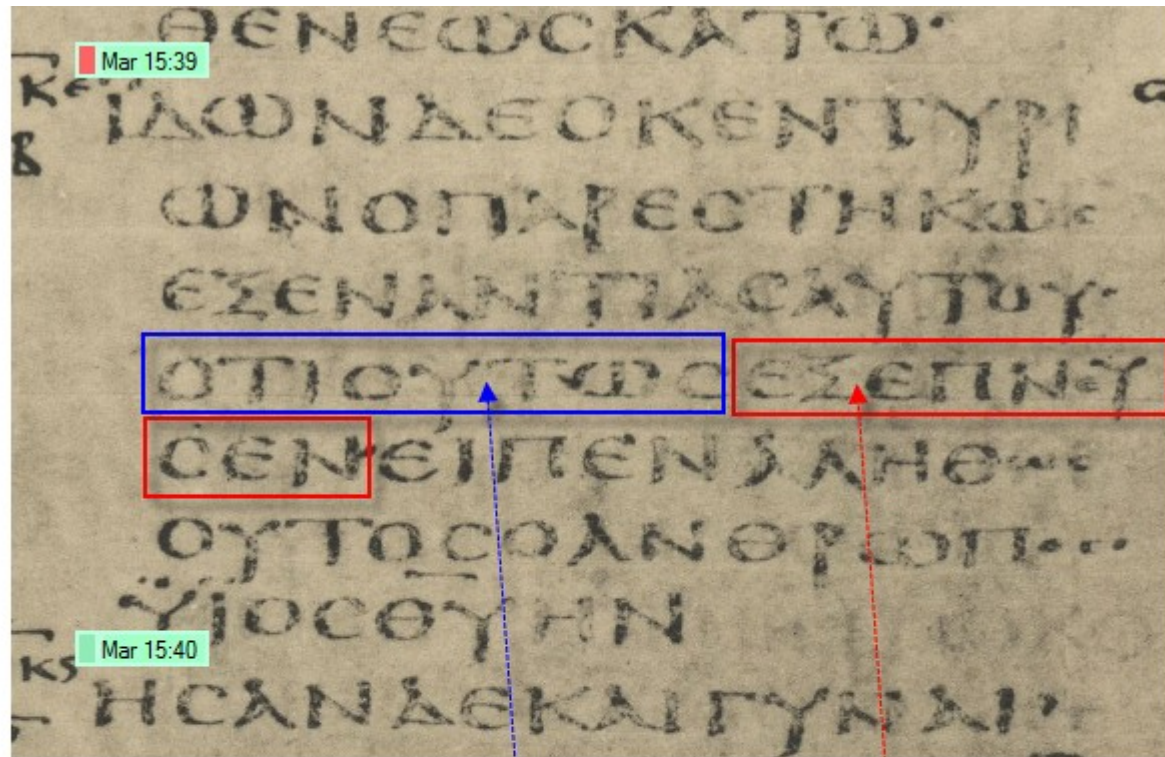 ΘΕΝΕΩϹΚΑΤΩ·
Mar 15:39
ΙΔΩΝΔΕΟΚΕΝΤΥΡΙ
ΩΝΟΠΑΡΕϹΤΗΚΩϹ
ΕΞΕΝΑΝΤΙΑϹΑΥΤΟΥ·
ΟΤΙΟΥΤΩϹΕΞΕΠΝΕΥ
ϹΕΝ·ΕΙΠΕΝΑΛΗΘΩϹ
ΟΥΤΟϹΟΑΝΘΡΩΠΟϹ
ΫΙΟϹΘ̅Υ̅ΗΝ
Mar 15:40
ΗϹΑΝΔΕΚΑΙΓΥΝΑΙ